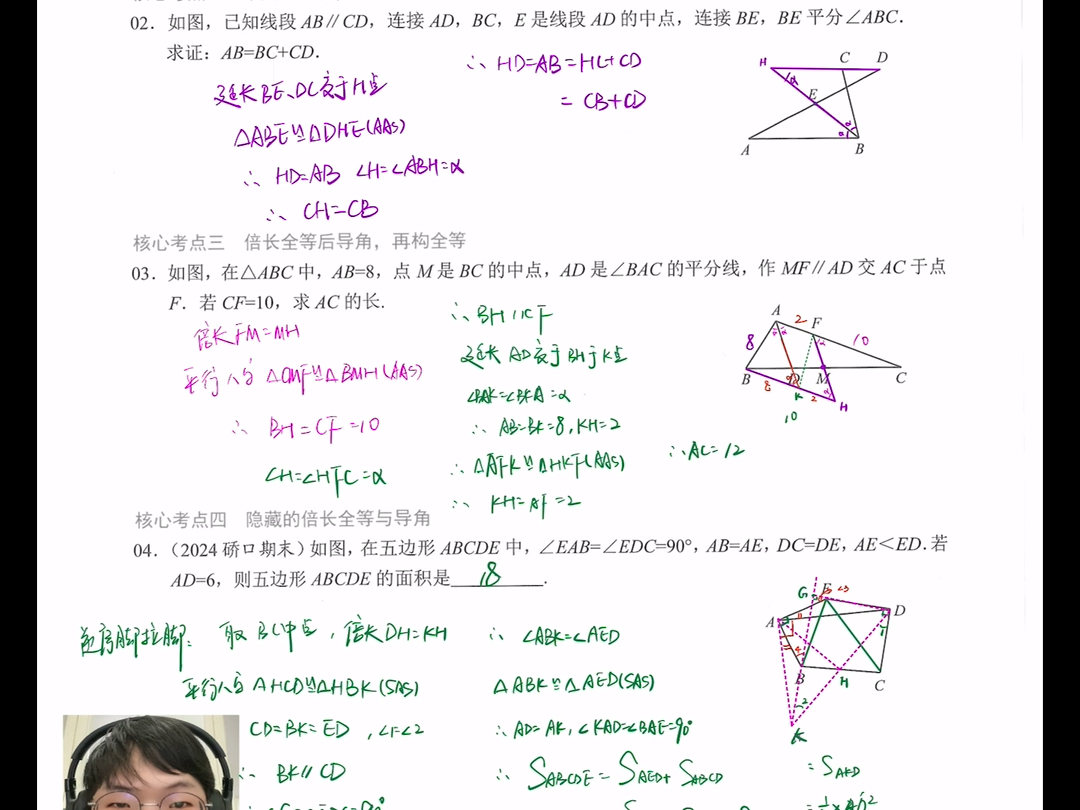 02．如图，已知线段 AB∥CD，连接 AD，BC，E 是线段 AD 的中点，连接 BE，BE 平分∠ABC．
求证：AB=BC+CD．
延长BE、DC交于H点
△ABE≌△DHE(AAS)
∴ HD=AB ∠H=∠ABH=α
∴ CH=CB
∴ HD=AB=HC+CD
= CB+CD
H C D
E
A B
核心考点三 倍长全等后导角，再构全等
03．如图，在△ABC 中，AB=8，点 M 是 BC 的中点，AD 是∠BAC 的平分线，作 MF∥AD 交 AC 于点
F．若 CF=10，求 AC 的长.
倍长FM=MH
平行八字 △CMF≌△BMH(AAS)
∴ BH=CF=10
∠H=∠HFC=α
∴ BH∥CF
延长 AD交于BH于K点
∠BAK=∠BKA=α
∴ AB=BK=8,KH=2
∴ △AFK≌△HKF(AAS)
∴ KH=AF=2
∴AC=12
A 2 F
8 10
B M C
8 K 2 H
10
核心考点四 隐藏的倍长全等与导角
04．（2024 硚口期末）如图，在五边形 ABCDE 中，∠EAB=∠EDC=90°，AB=AE，DC=DE，AE＜ED．若
AD=6，则五边形 ABCDE 的面积是 18 ．
取BC中点，倍长DH=KH
平行八字 △HCD≌△HBK(SAS)
CD=BK=ED ，∠1=∠2
∴ BK∥CD
∴ ∠ABK=∠AED
△ABK≌△AED(SAS)
∴ AD=AK,∠KAD=∠BAE=90°
∴ SABCDE=SAED+SABCD
=SAKD
G E
A D
B H C
K